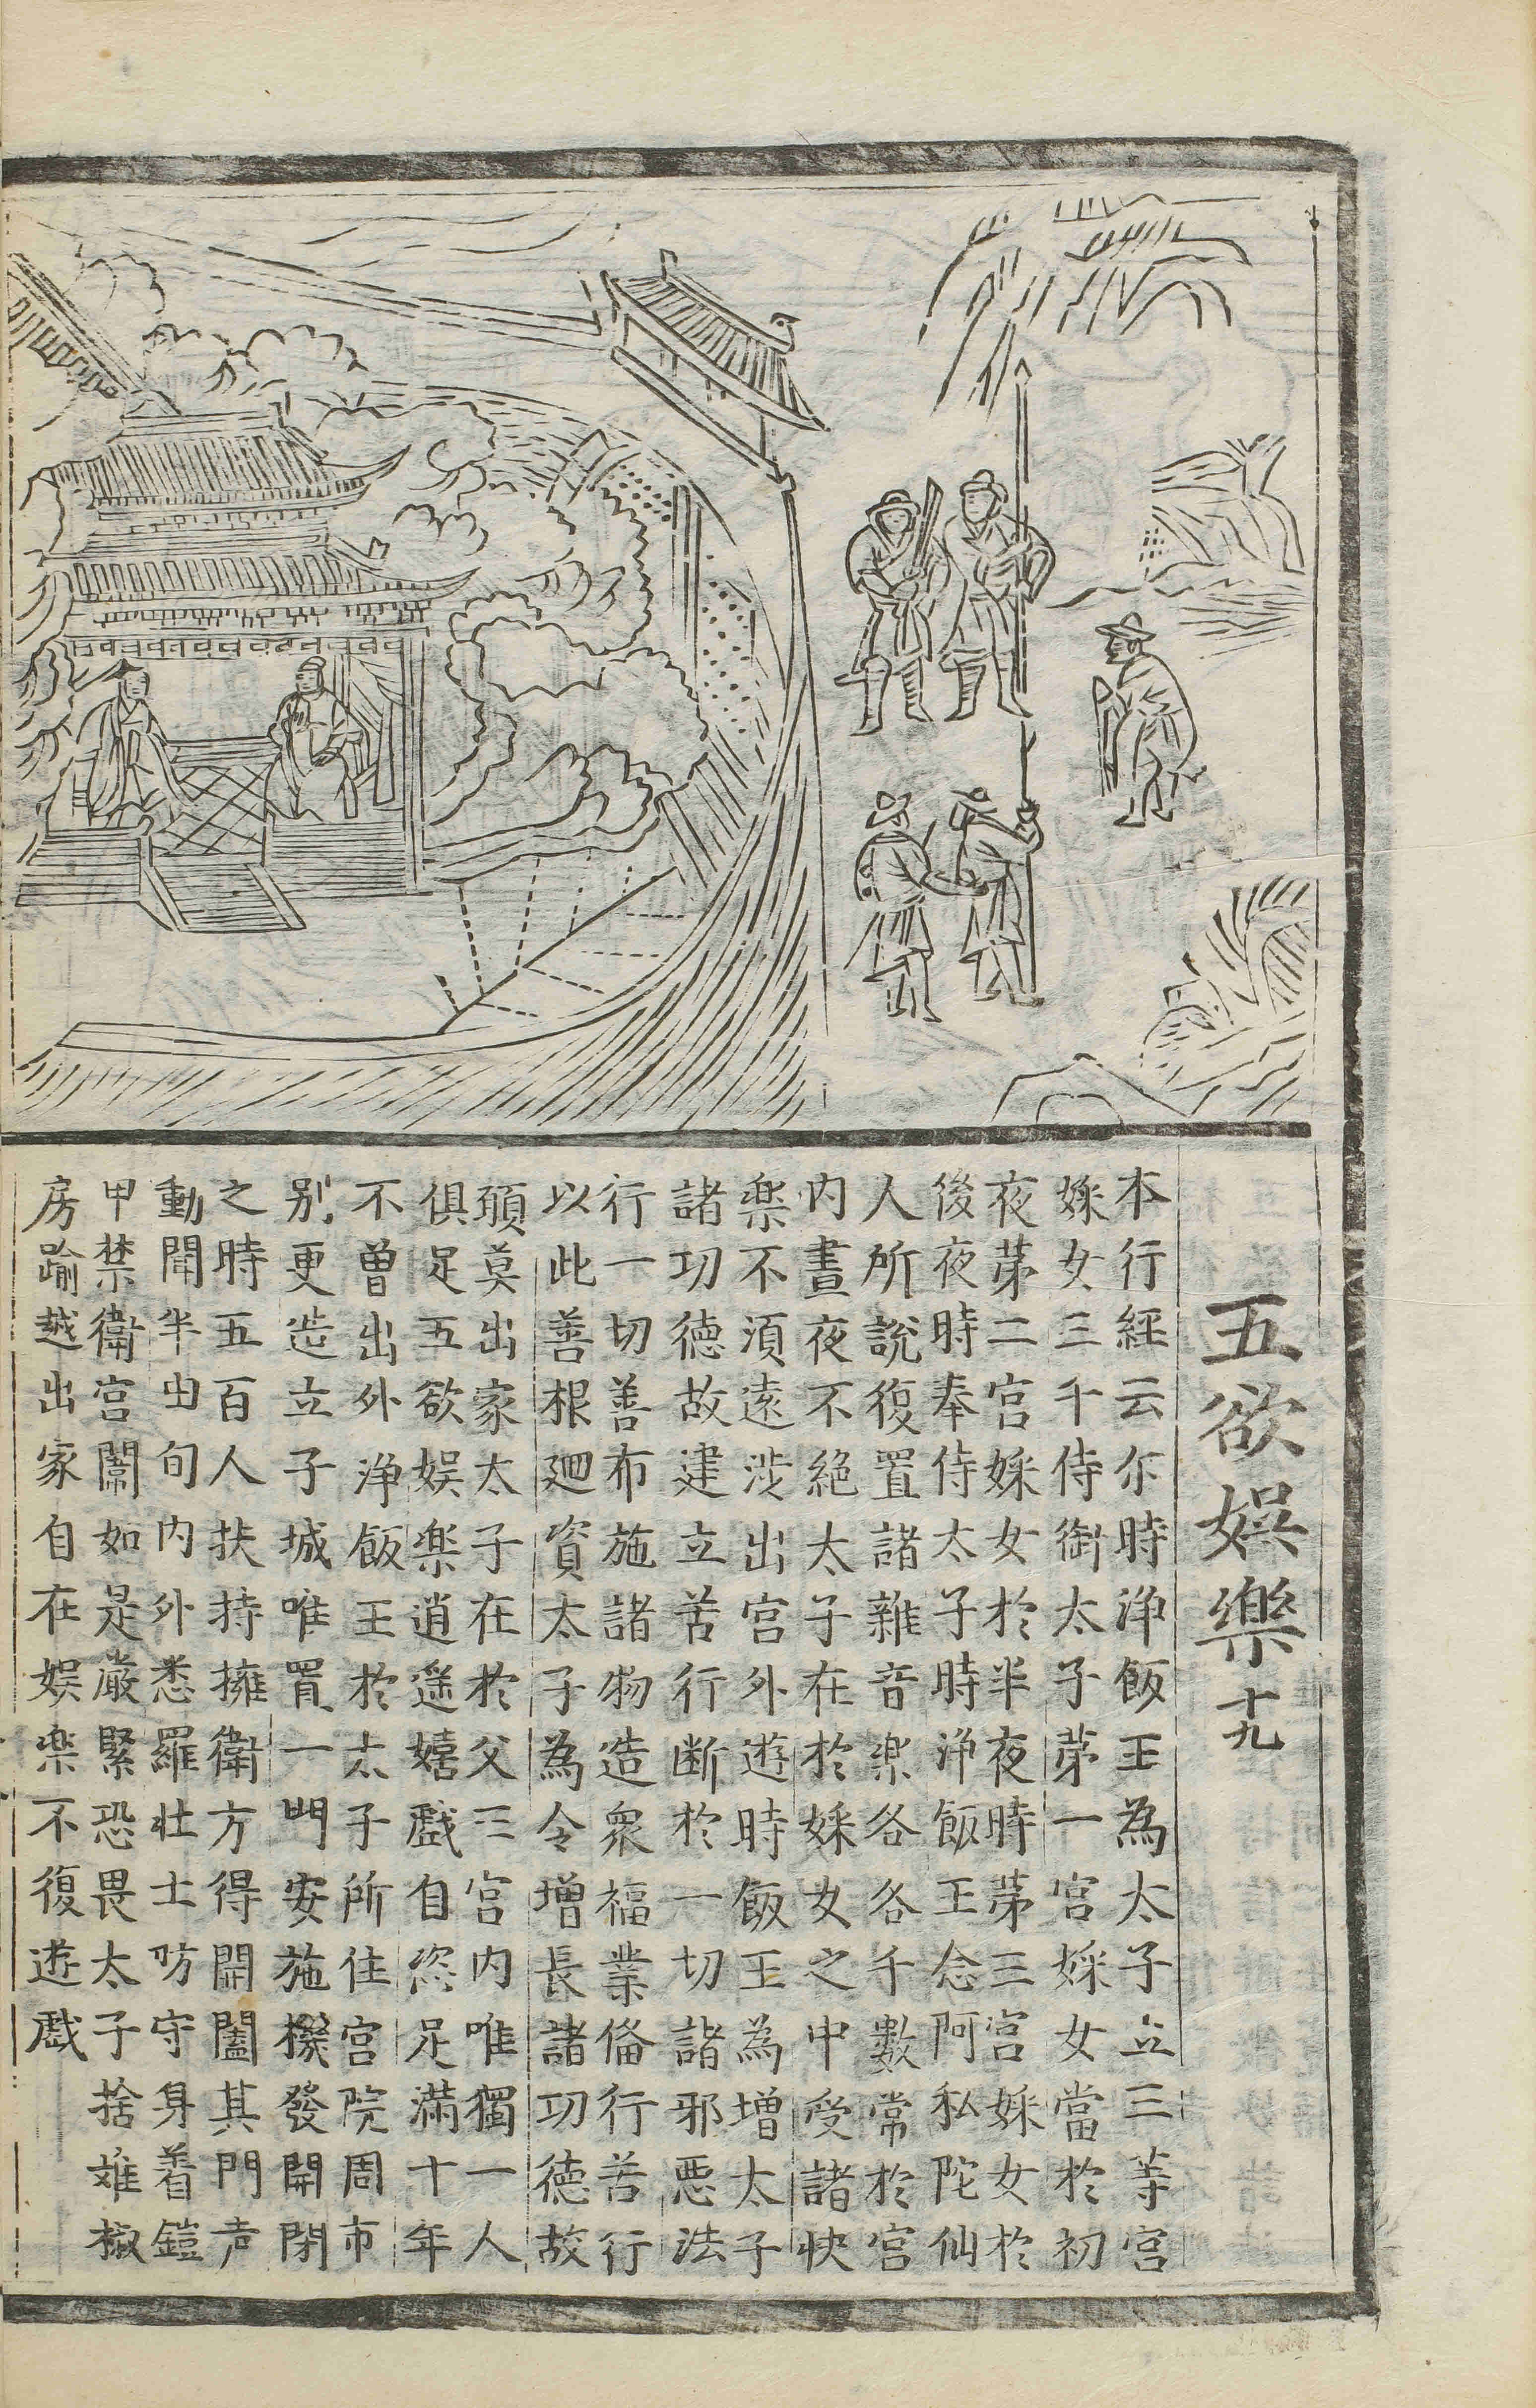 五欲娯樂十九
本行經云尒時淨飯王為太子立三等宮
婇女三千侍衛太子苐一宮婇女當於初
夜苐二宮婇女於半夜時苐三宮婇女於
後夜時奉侍太子時淨飯王念阿私陀仙
人所說復置諸雜音楽各各千數常於宮
内晝夜不絶太子在於婇女之中受諸快
楽不湏逺涉出宮外遊時飯王為增太子
諸功德故建立苦行断於一切諸邪惡法
行一切善布施諸物造衆福業俻行苦行
以此善根廻資太子為令增長諸功德故
頭莫出家太子在於父三宮内唯獨一人
俱足五欲娯楽逍遥嬉戲自恣足滿十年
不曽出外淨飯王於太子所住宮院周帀
别更造立子城唯置一門安施機發開閉
之時五百人扶持擁衛方得開闔其門声
動聞半由旬内外悉羅壮士防守身着鎧
甲禁衛宮闈如是嚴緊恐畏太子捨难椒
房踰越出家自在娯楽不復遊戲